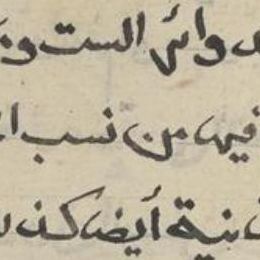 وائر الست و
فيها من نسب ا
نية أيضا كذ